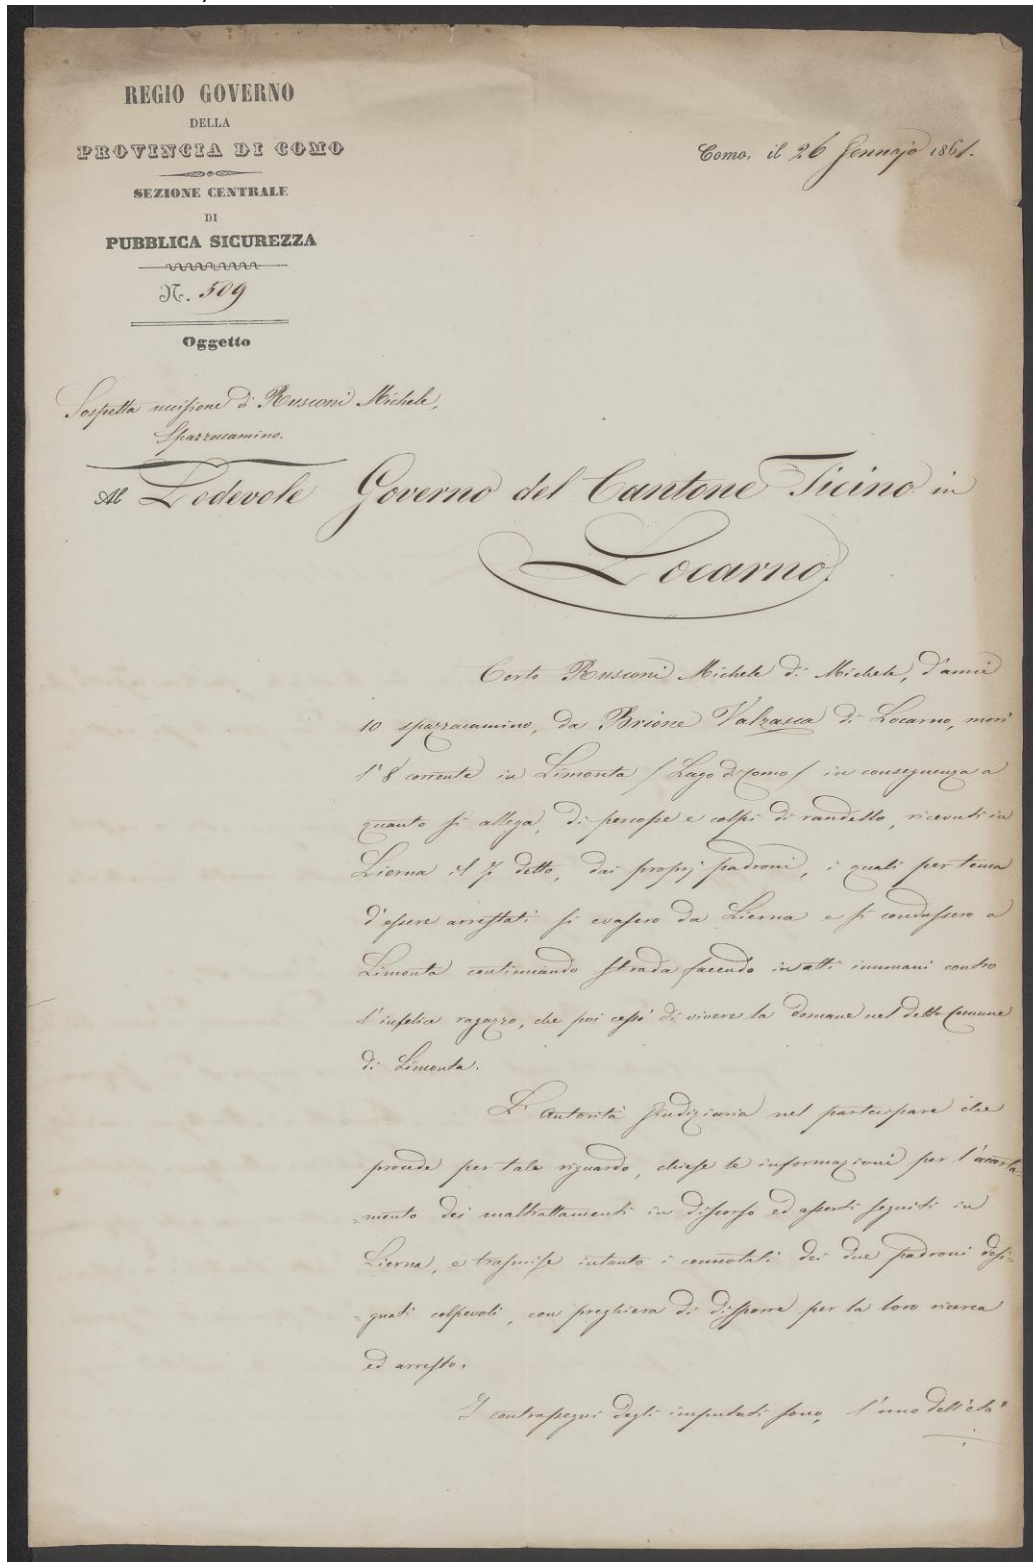 REGIO GOVERNO
DELLA
PROVINCIA DI COMO
SEZIONE CENTRALE
DI
PUBBLICA SICUREZZA
N. 509
Oggetto
Como, il 26 Gennajo 1861.
Sospetta uccisione di Rusconi Michele,
Spazzacamino.
Al Lodevole Governo del Cantone Ticino in
Locarno.
Certo Rusconi Michele di Michele, d'anni
10 spazzacamino, da Brione Valzasca di Locarno, morì
l'8 corrente in Limonta / Lago di Como / in conseguenza a
quanto si allega, di percosse e colpi di randello, ricevuti in
Lierna il 7 detto, dai proprj padroni, i quali per tema
d'essere arrestati si evasero da Lierna e si condussero a
Limonta continuando strada facendo in atti inumani contro
l'infelice ragazzo, che poi cessò di vivere la domane nel detto Comune
di Limonta.
L'Autorità Giudiziaria nel partecipare che
procede per tale riguardo, chiese le informazioni per l'accerta-
-mento dei maltrattamenti in discorso ed asserti seguiti in
Lierna, e trasmise intanto i connotati dei due padroni desi-
-gnati colpevoli, con preghiera di disporre per la loro ricerca
ed arresto.
I contrassegni degli imputati sono, l'uno dell'età